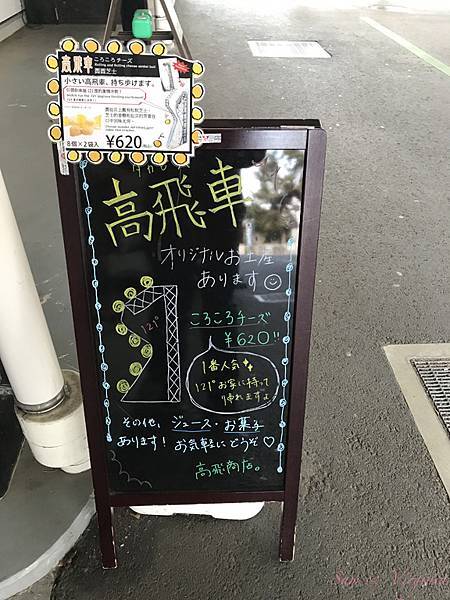 高飛車
ころころチーズ
圓圓芝士
小さい高飛車、持ち歩けます。
8個×2袋入
¥620
高飛車
オリジナルお土産
あります
121°
ころころチーズ
¥620!!
1番人気
121°お家に持って
帰れますよ
その他、ジュース・お菓子
あります! お気軽にどうぞ♡
高飛商店。